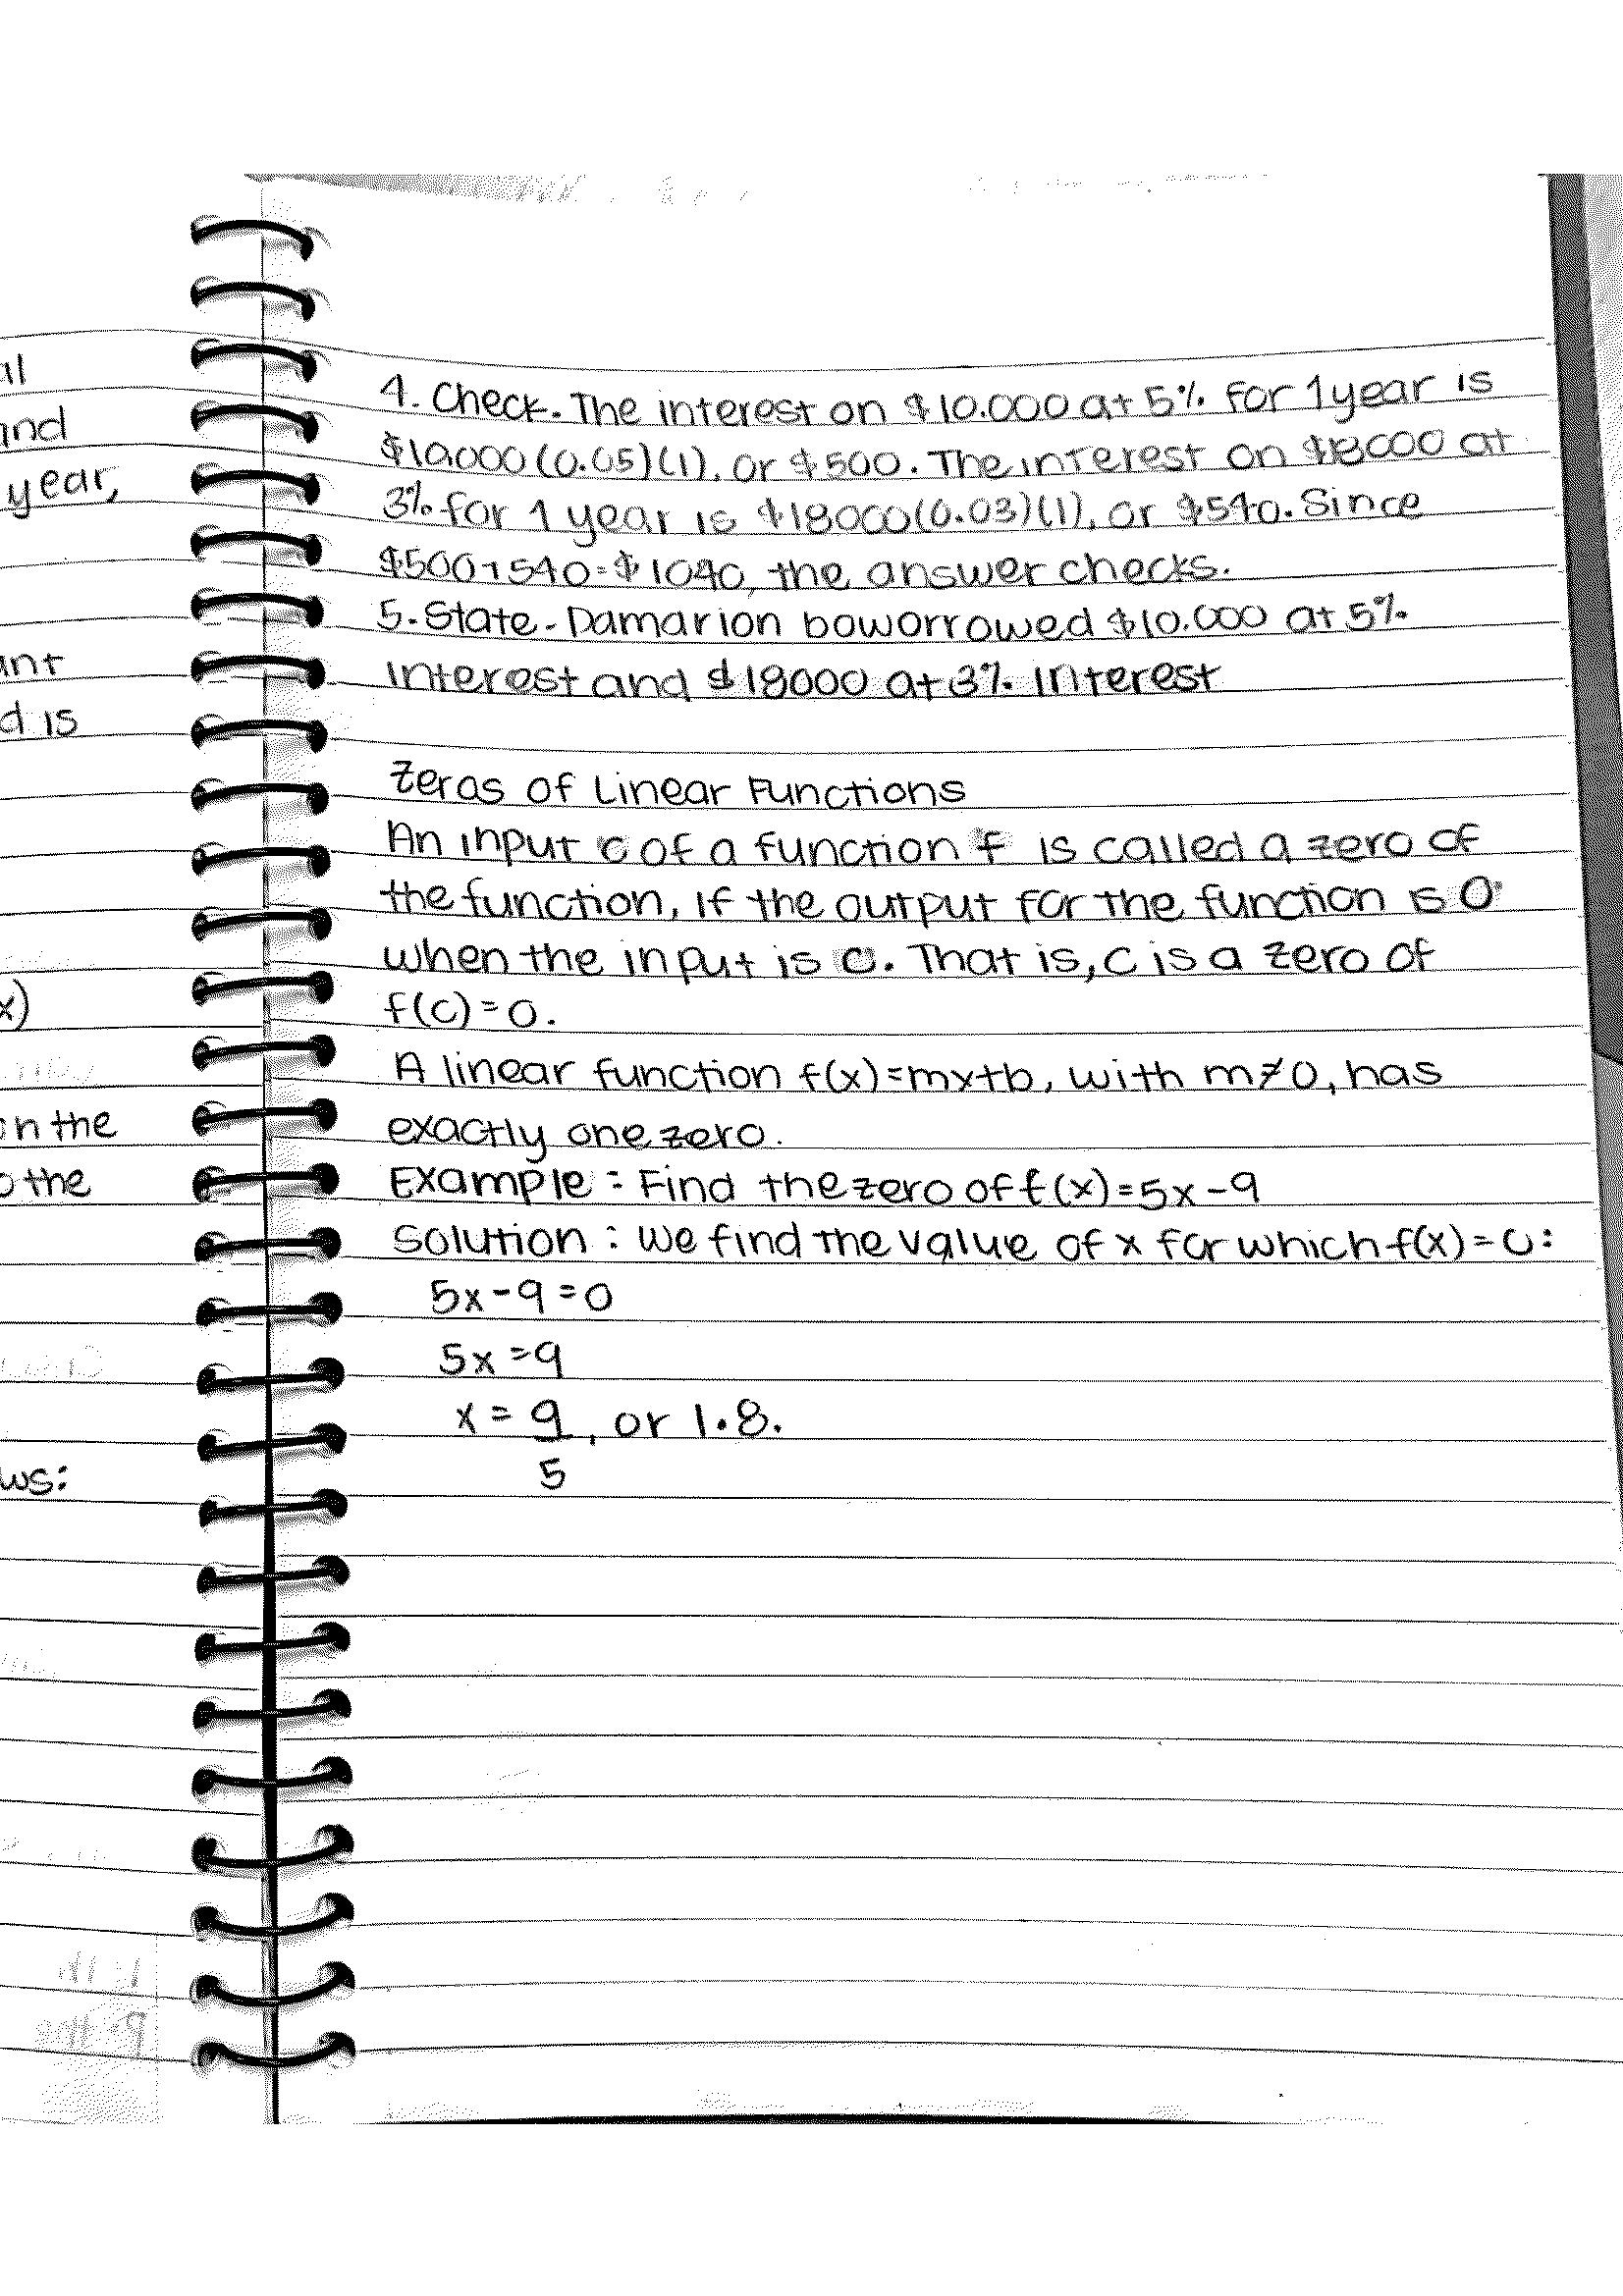 al
and
year,
ant
d is
x)
on the
o the
ws:
4. Check. The interest on $10.000 at 5% for 1 year is
$10,000 (0.05)(1), or $500. The interest on $18000 at
3% for 1 year is $18000(0.03)(1), or $540. Since
$500+540=$1040, the answer checks.
5. State. Damarion boworrowed $10.000 at 5%
interest and $18000 at 3% interest
Zeros of Linear Functions
An input c of a function f is called a zero of
the function, if the output for the function is 0
when the input is c. That is, c is a zero of
f(c)=0.
A linear function f(x)=mx+b, with m≠0, has
exactly one zero.
Example : Find the zero of f(x)=5x-9
Solution : We find the value of x for which f(x)=0:
5x-9=0
5x=9
x = 9, or 1.8.
5